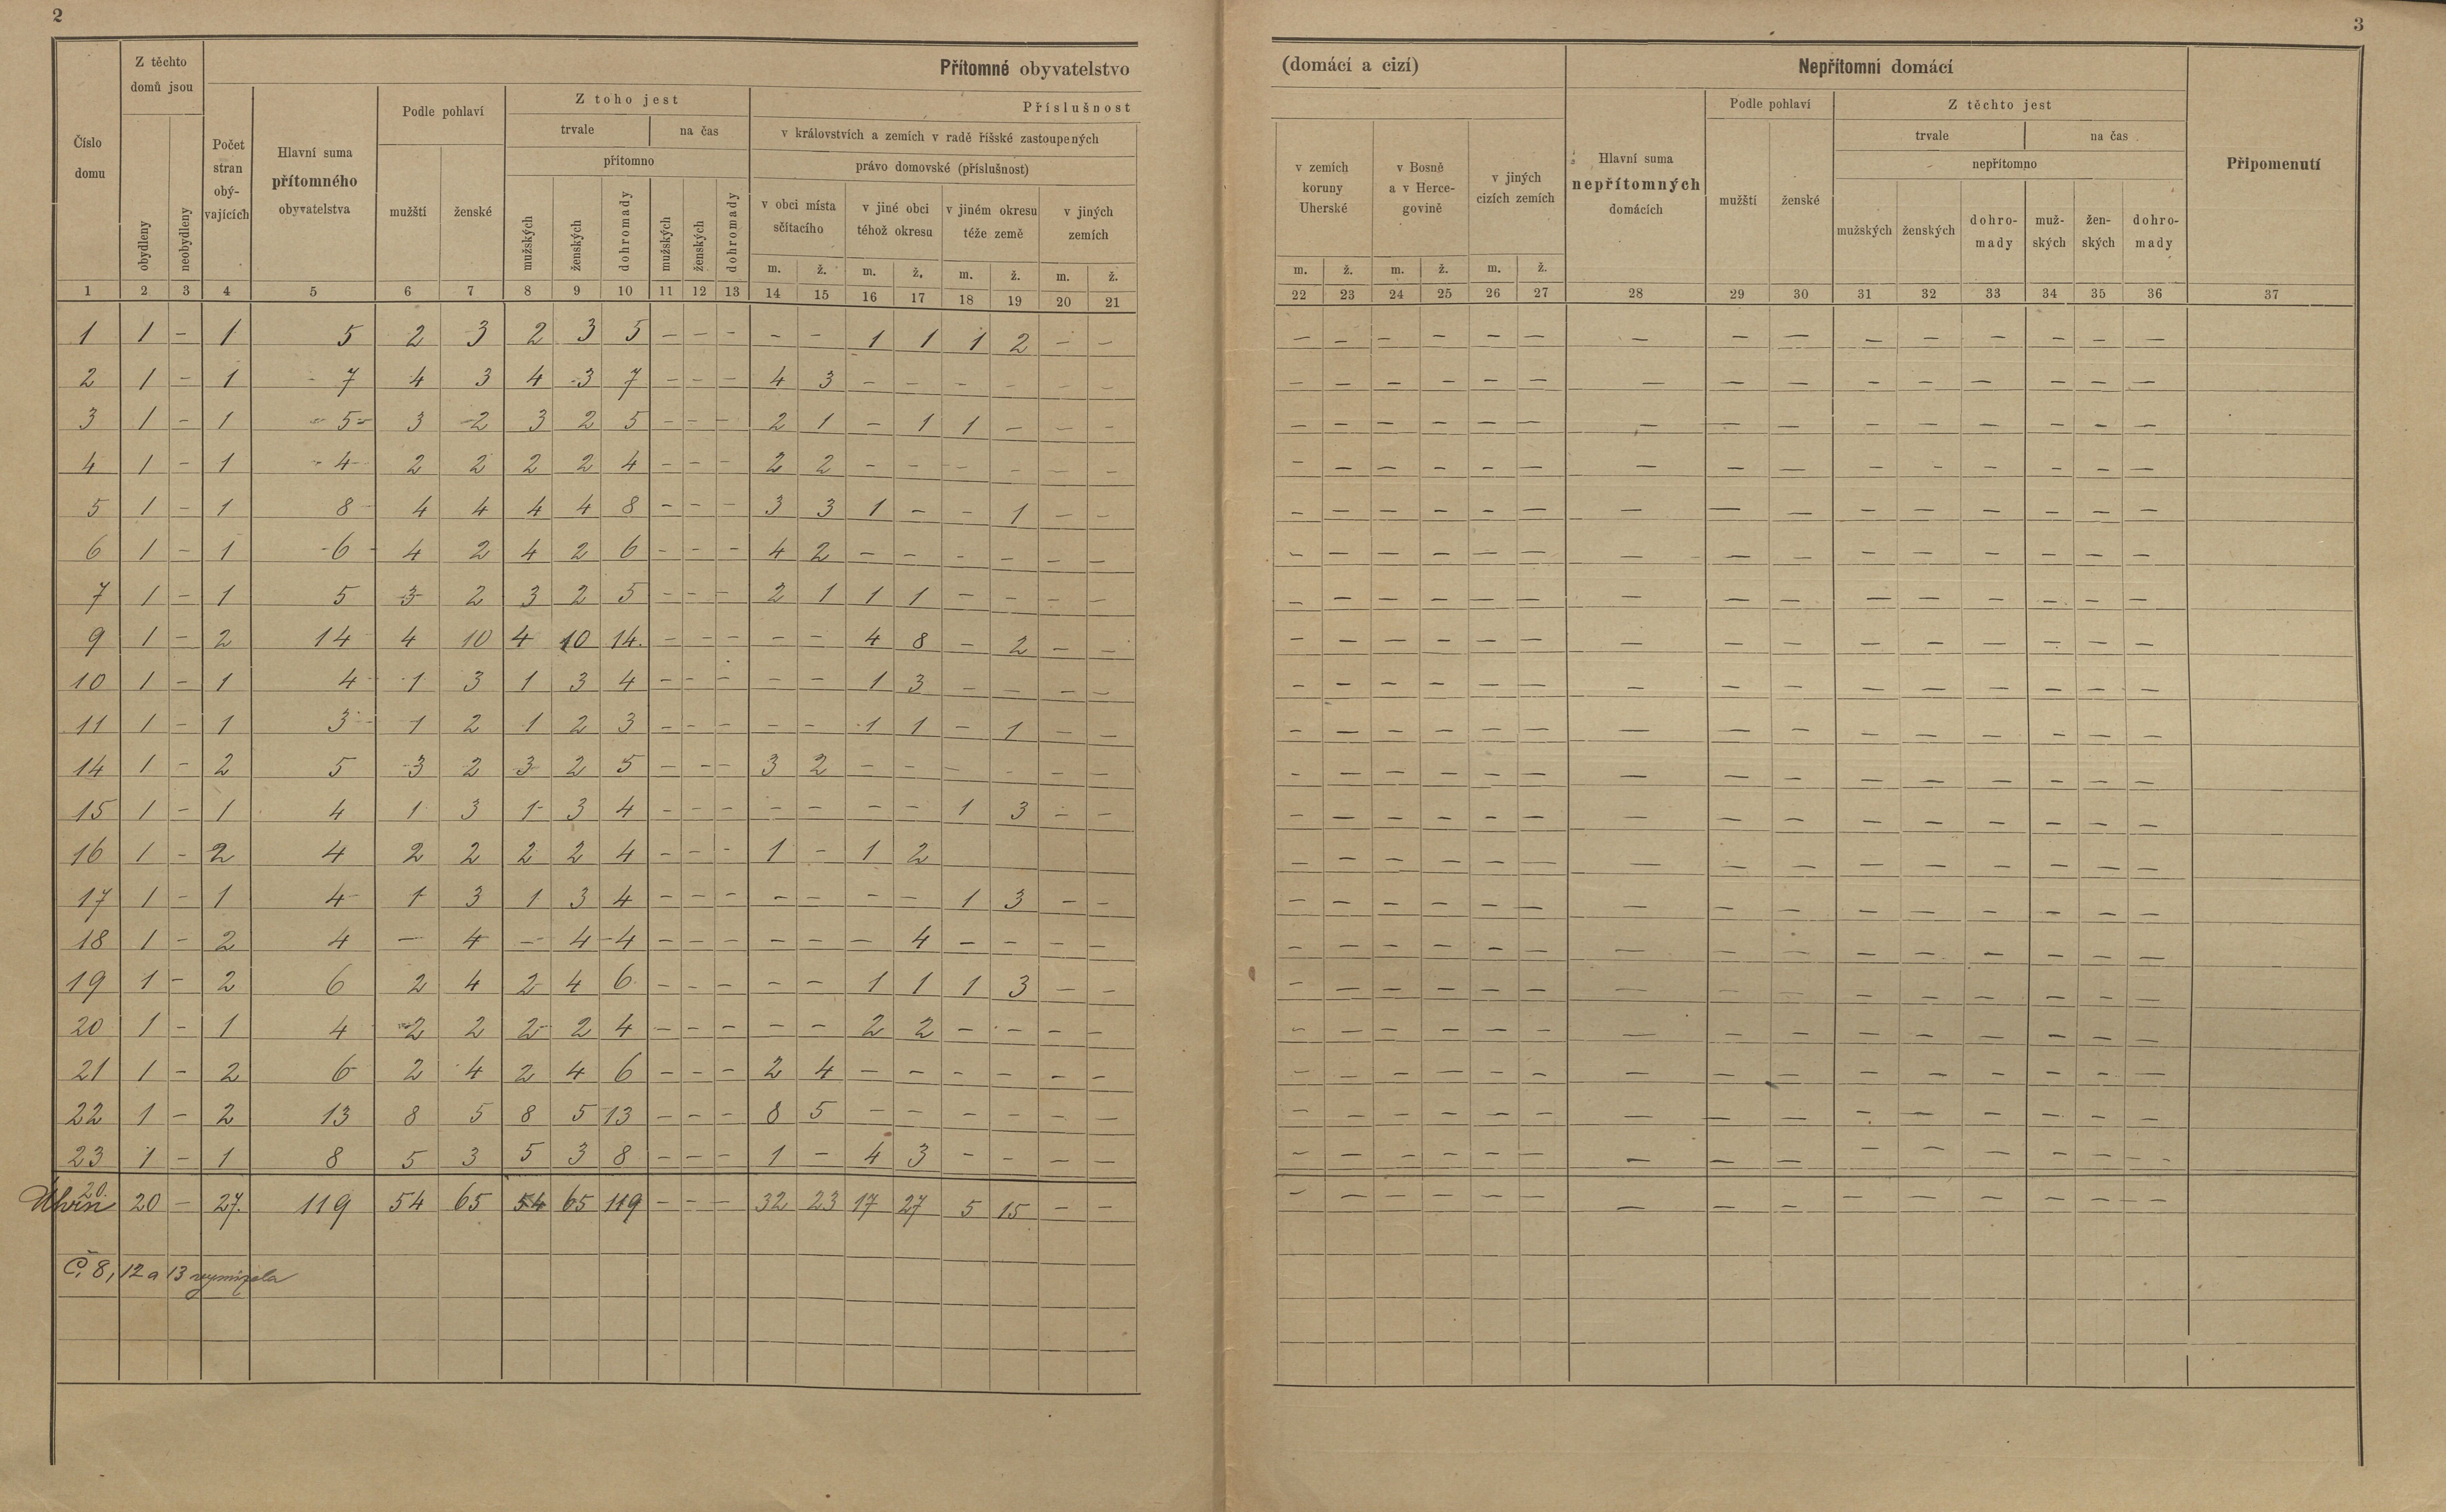 2
3
Číslo domu
Z těchto domů jsou
obydleny
neobydleny
Přítomné obyvatelstvo
(domácí a cizí)
Počet stran obý-vajících
Hlavní suma přítomného obyvatelstva
Podle pohlaví
mužští
ženské
Z toho jest
trvale
na čas
přítomno
mužských
ženských
dohromady
mužských
ženských
dohromady
Příslušnost
v královstvích a zemích v radě říšské zastoupených
právo domovské (příslušnost)
v obci místa sčítacího
v jiné obci téhož okresu
v jiném okresu téže země
v jiných zemích
m. ž. m. ž. m. ž. m. ž.
v zemích koruny Uherské
v Bosně a v Herce-govině
v jiných cizích zemích
m. ž. m. ž. m. ž.
Nepřítomní domácí
Hlavní suma nepřítomných domácích
Podle pohlaví
mužští
ženské
Z těchto jest
trvale
na čas
nepřítomno
mužských
ženských
dohro-mady
muž-ských
žen-ských
dohro-mady
Připomenutí
1 2 3 4 5 6 7 8 9 10 11 12 13 14 15 16 17 18 19 20 21 22 23 24 25 26 27 28 29 30 31 32 33 34 35 36 37
1 1 - 1 5 2 3 2 3 5 - - - - - 1 1 1 2 - - - - - - - - - - - - - - - - -
2 1 - 1 7 4 3 4 3 7 - - - 4 3 - - - - - - - - - - - - - - - - - - - - -
3 1 - 1 5 3 2 3 2 5 - - - 2 1 - 1 1 - - - - - - - - - - - - - - - - - -
4 1 - 1 4 2 2 2 2 4 - - - 2 2 - - - - - - - - - - - - - - - - - - - - -
5 1 - 1 8 4 4 4 4 8 - - - 3 3 1 - - 1 - - - - - - - - - - - - - - - - -
6 1 - 1 6 4 2 4 2 6 - - - 4 2 - - - - - - - - - - - - - - - - - - - - -
7 1 - 1 5 3 2 3 2 5 - - - 2 1 1 1 - - - - - - - - - - - - - - - - - - -
9 1 - 2 14 4 10 4 10 14. - - - - - 4 8 - 2 - - - - - - - - - - - - - - - - -
10 1 - 1 4 1 3 1 3 4 - - - - - 1 3 - - - - - - - - - - - - - - - - - - -
11 1 - 1 3 1 2 1 2 3 - - - - - 1 1 - 1 - - - - - - - - - - - - - - - - -
14 1 - 2 5 3 2 3 2 5 - - - 3 2 - - - - - - - - - - - - - - - - - - - - -
15 1 - 1 4 1 3 1 3 4 - - - - - - - 1 3 - - - - - - - - - - - - - - - - -
16 1 - 2 4 2 2 2 2 4 - - - 1 - 1 2 - - - - - - - - - - - - - - -
17 1 - 1 4 1 3 1 3 4 - - - - - - - 1 3 - - - - - - - - - - - - - - - - -
18 1 - 2 4 - 4 - 4 4 - - - - - - 4 - - - - - - - - - - - - - - - - - - -
19 1 - 2 6 2 4 2 4 6 - - - - - 1 1 1 3 - - - - - - - - - - - - - - - - -
20 1 - 1 4 2 2 2 2 4 - - - - - 2 2 - - - - - - - - - - - - - - - - - - -
21 1 - 2 6 2 4 2 4 6 - - - 2 4 - - - - - - - - - - - - - - - - - - - - -
22 1 - 2 13 8 5 8 5 13 - - - 8 5 - - - - - - - - - - - - - - - - - - - - -
23 1 - 1 8 5 3 5 3 8 - - - 1 - 4 3 - - - - - - - - - - - - - - - - - - -
Úhrn 20. 20 - 27. 119 54 65 54 65 119 - - - 32 23 17 27 5 15 - - - - - - - - - - - - - - - - -
Č. 8, 12 a 13 vymizela